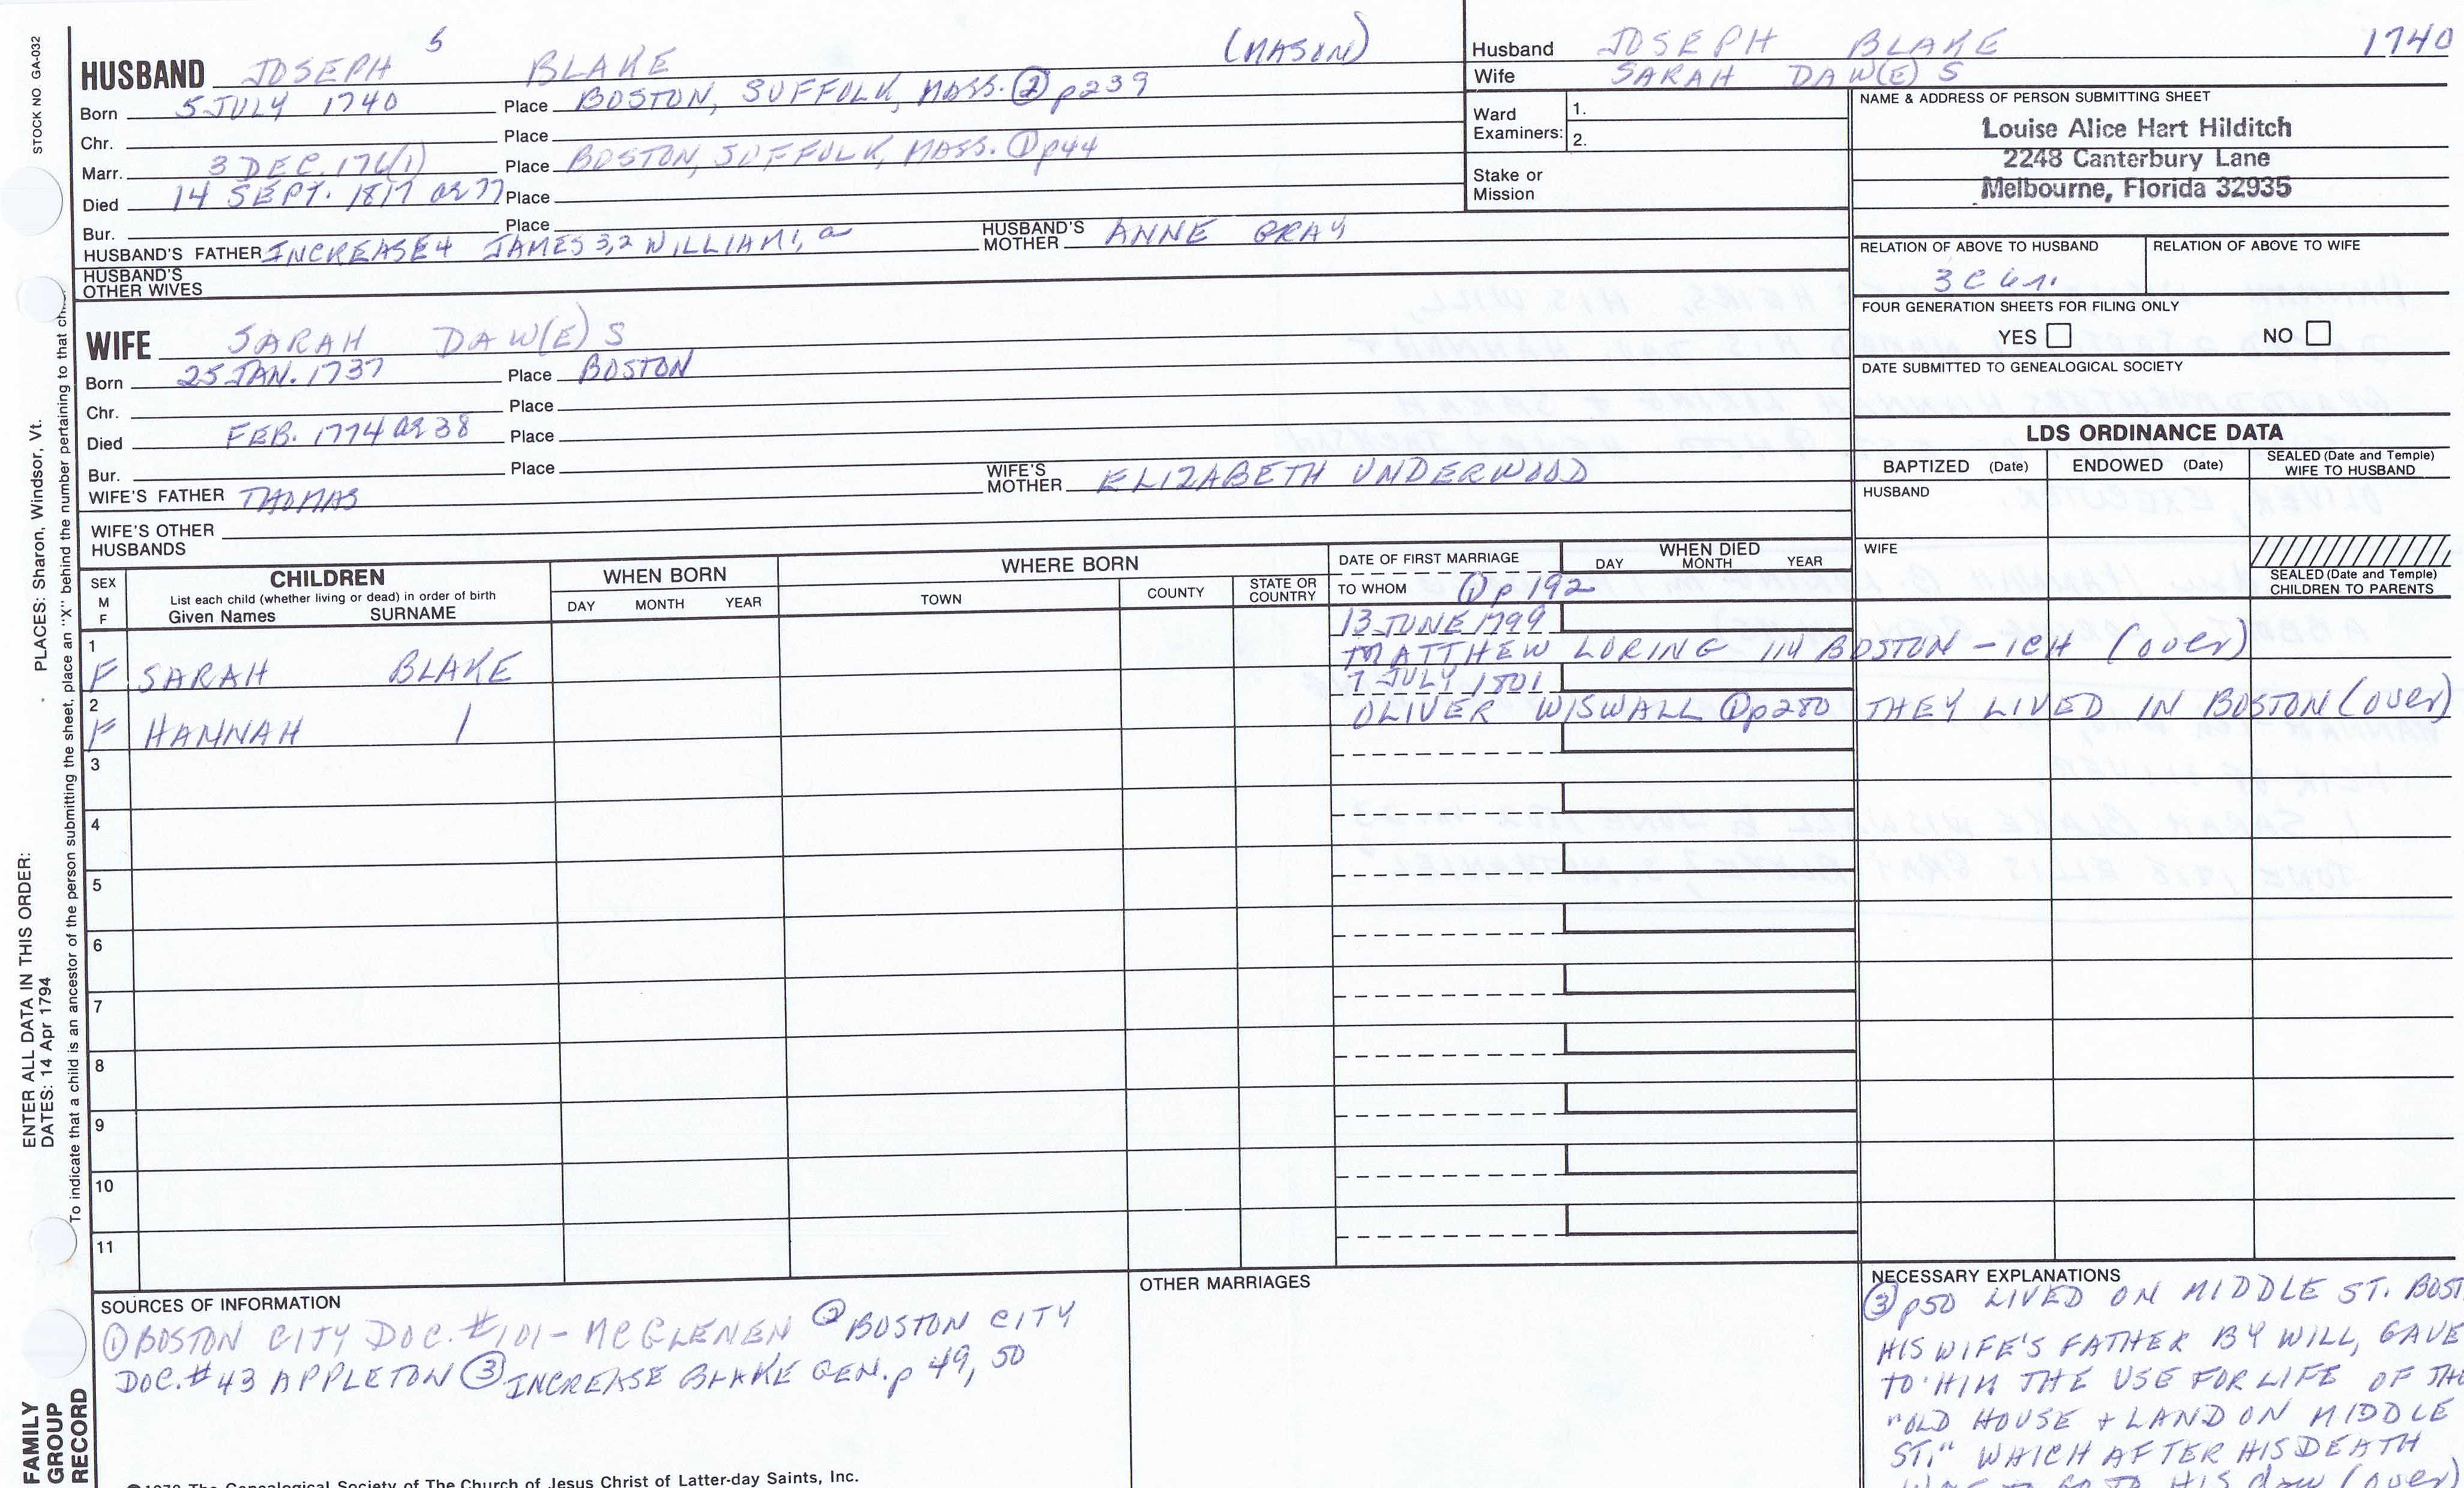 STOCK NO GA-032
PLACES: Sharon, Windsor, Vt.
ENTER ALL DATA IN THIS ORDER:
DATES: 14 Apr 1794
To indicate that a child is an ancestor of the person submitting the sheet, place an "X" behind the number pertaining to that
FAMILY GROUP RECORD
HUSBAND JOSEPH 5 BLAKE (MASON)
Born 5 JULY 1740 Place BOSTON, SUFFOLK, MASS. ② p239
Chr. Place
Marr. 3 DEC. 176(1) Place BOSTON, SUFFOLK, MASS. ① p44
Died 14 SEPT. 1817 ae 77 Place
Bur. Place
HUSBAND'S FATHER INCREASE 4 JAMES 3,2 WILLIAM 1, a HUSBAND'S MOTHER ANNE GRAY
HUSBAND'S OTHER WIVES
WIFE SARAH DAW(E)S
Born 25 JAN. 1737 Place BOSTON
Chr. Place
Died FEB. 1774 ae 38 Place
Bur. Place
WIFE'S FATHER THOMAS WIFE'S MOTHER ELIZABETH UNDERWOOD
WIFE'S OTHER HUSBANDS
Husband JOSEPH BLAKE 1740
Wife SARAH DAW(E)S
Ward Examiners: 1.
2.
Stake or Mission
NAME & ADDRESS OF PERSON SUBMITTING SHEET
Louise Alice Hart Hilditch
2248 Canterbury Lane
Melbourne, Florida 32935
RELATION OF ABOVE TO HUSBAND RELATION OF ABOVE TO WIFE
3 C 6 r.
FOUR GENERATION SHEETS FOR FILING ONLY
YES NO
DATE SUBMITTED TO GENEALOGICAL SOCIETY
LDS ORDINANCE DATA
BAPTIZED (Date) ENDOWED (Date) SEALED (Date and Temple) WIFE TO HUSBAND
HUSBAND
WIFE
SEALED (Date and Temple) CHILDREN TO PARENTS
SEX M F
CHILDREN
List each child (whether living or dead) in order of birth
Given Names SURNAME
WHEN BORN
DAY MONTH YEAR
WHERE BORN
TOWN COUNTY STATE OR COUNTRY
DATE OF FIRST MARRIAGE
TO WHOM ① p192
WHEN DIED
DAY MONTH YEAR
1 13 JUNE 1799
F SARAH BLAKE MATTHEW LORING 114 BOSTON - 1CH (over)
2 7 JULY 1801
F HANNAH OLIVER WISWALL ① p280 THEY LIVED IN BOSTON (over)
3
4
5
6
7
8
9
10
11
SOURCES OF INFORMATION
① BOSTON CITY DOC. #101 - MCGLENEN ② BOSTON CITY
DOC. #43 APPLETON ③ INCREASE BLAKE GEN. p 49, 50
OTHER MARRIAGES
NECESSARY EXPLANATIONS
③ p50 LIVED ON MIDDLE ST. BOST
HIS WIFE'S FATHER BY WILL, GAVE
TO HIM THE USE FOR LIFE OF
"OLD HOUSE + LAND ON MIDDLE
ST." WHICH AFTER HIS DEATH
HIS (over)
The Genealogical Society of The Church of Jesus Christ of Latter-day Saints, Inc.